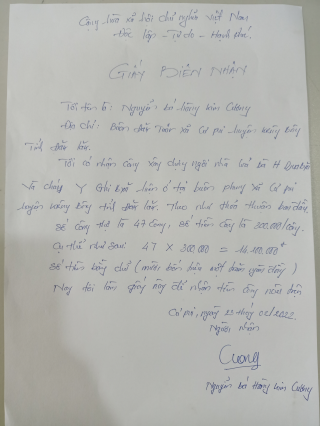 Cộng hòa xã hội chủ nghĩa việt Nam
Độc lập - Tự do - Hạnh phúc.
GIẤY BIÊN NHẬN
Tôi tên là: Nguyễn bá Hoàng kim Cương
Địa chỉ: Buôn xã Cư pui huyện krông Bông
Tỉnh đăk lăk.
Tôi có nhận công xây dựng ngôi nhà của bà H
Và cháu Y ở tại buôn xã Cư pui
huyện krông bông tỉnh đăk lăk. Theo như thỏa thuận ban đầu
số công thợ là 47 công, số tiền công là 300.000/công.
Cụ thể như sau: 47 X 300.000 = 14.100.000đ
số tiền bằng chữ (mười bốn triệu một trăm ngàn đồng)
Nay tôi làm giấy này đã nhận tiền công
Cư pui, ngày 23 tháng /2022
Người nhận
Cương
Nguyễn bá Hoàng kim Cương